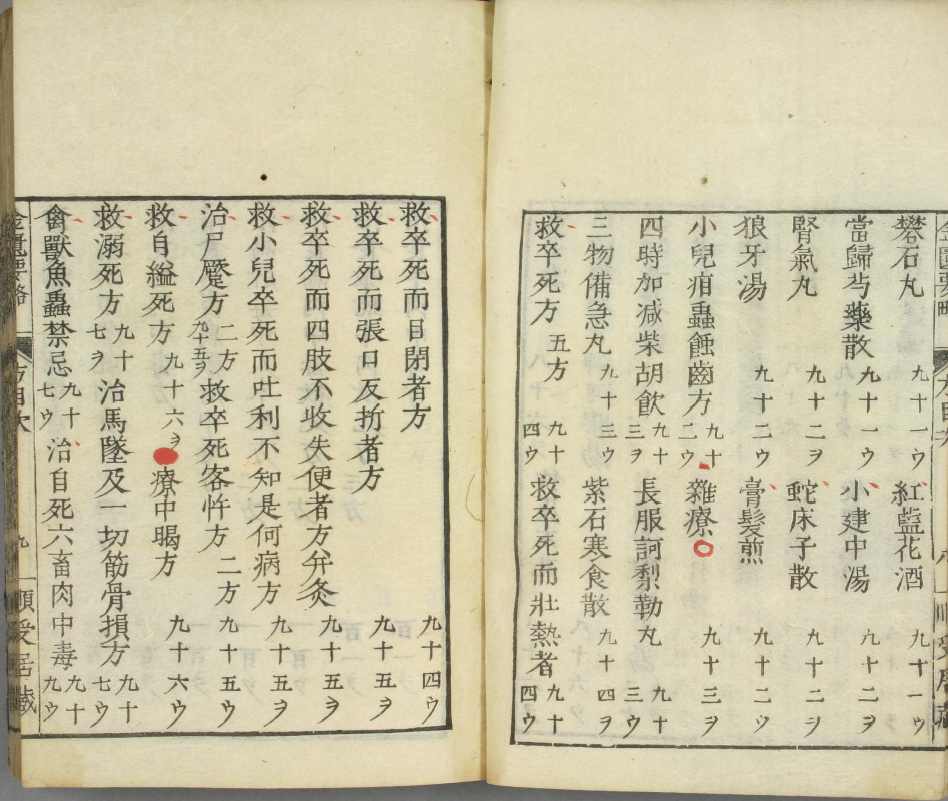 礬石丸 九十一ウ 紅藍花酒 九十一ウ
當歸芍藥散 九十一ウ 小建中湯 九十二ヲ
腎氣丸 九十二ヲ 蛇床子散 九十二ヲ
狼牙湯 九十二ウ 膏髮煎 九十二ウ
小兒疳蟲蝕齒方 九十二ウ 雜療 九十三ヲ
四時加減柴胡飲 九十三ヲ 長服訶梨勒丸 九十三ウ
三物備急丸 九十三ウ 紫石寒食散 九十四ヲ
救卒死方 五方 九十四ウ 救卒死而壯熱者 九十四ウ
救卒死而目閉者方 九十四ウ
救卒死而張口反折者方 九十五ヲ
救卒死而四肢不收失便者方幷灸 九十五ヲ
救小兒卒死而吐利不知是何病方 九十五ヲ
治尸蹷方 二方 九十五ヲ 救卒死客忤方 二方 九十五ウ
救自縊死方 九十六ヲ 療中暍方 九十六ウ
救溺死方 九十七ヲ 治馬墜及一切筋骨損方 九十七ウ
禽獸魚蟲禁忌 九十七ウ 治自死六畜肉中毒 九十九ウ